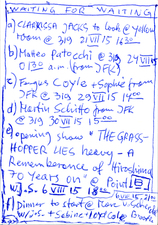 WAITING FOR WAITING
a) CLARISSA to look @ yellow
room @ 319 21 VII 15 1630
b) Mateo @ 319 24 VII 15
0130 a.m. (from JFK)
c) Fergus Coyle + Sophie from
JFK @ 319 29 VII 15
d) Martin Schitto from JFK
@ 319 30 VII 15 15
e) opening show "THE GRASS-
HOPPER LIES heavy - A
Rememberance of Hiroshima
70 years on @ Point
w/ J.S. 6 VIII 15 18
f) Dinner to start @
w/ J.S. + Sabine +